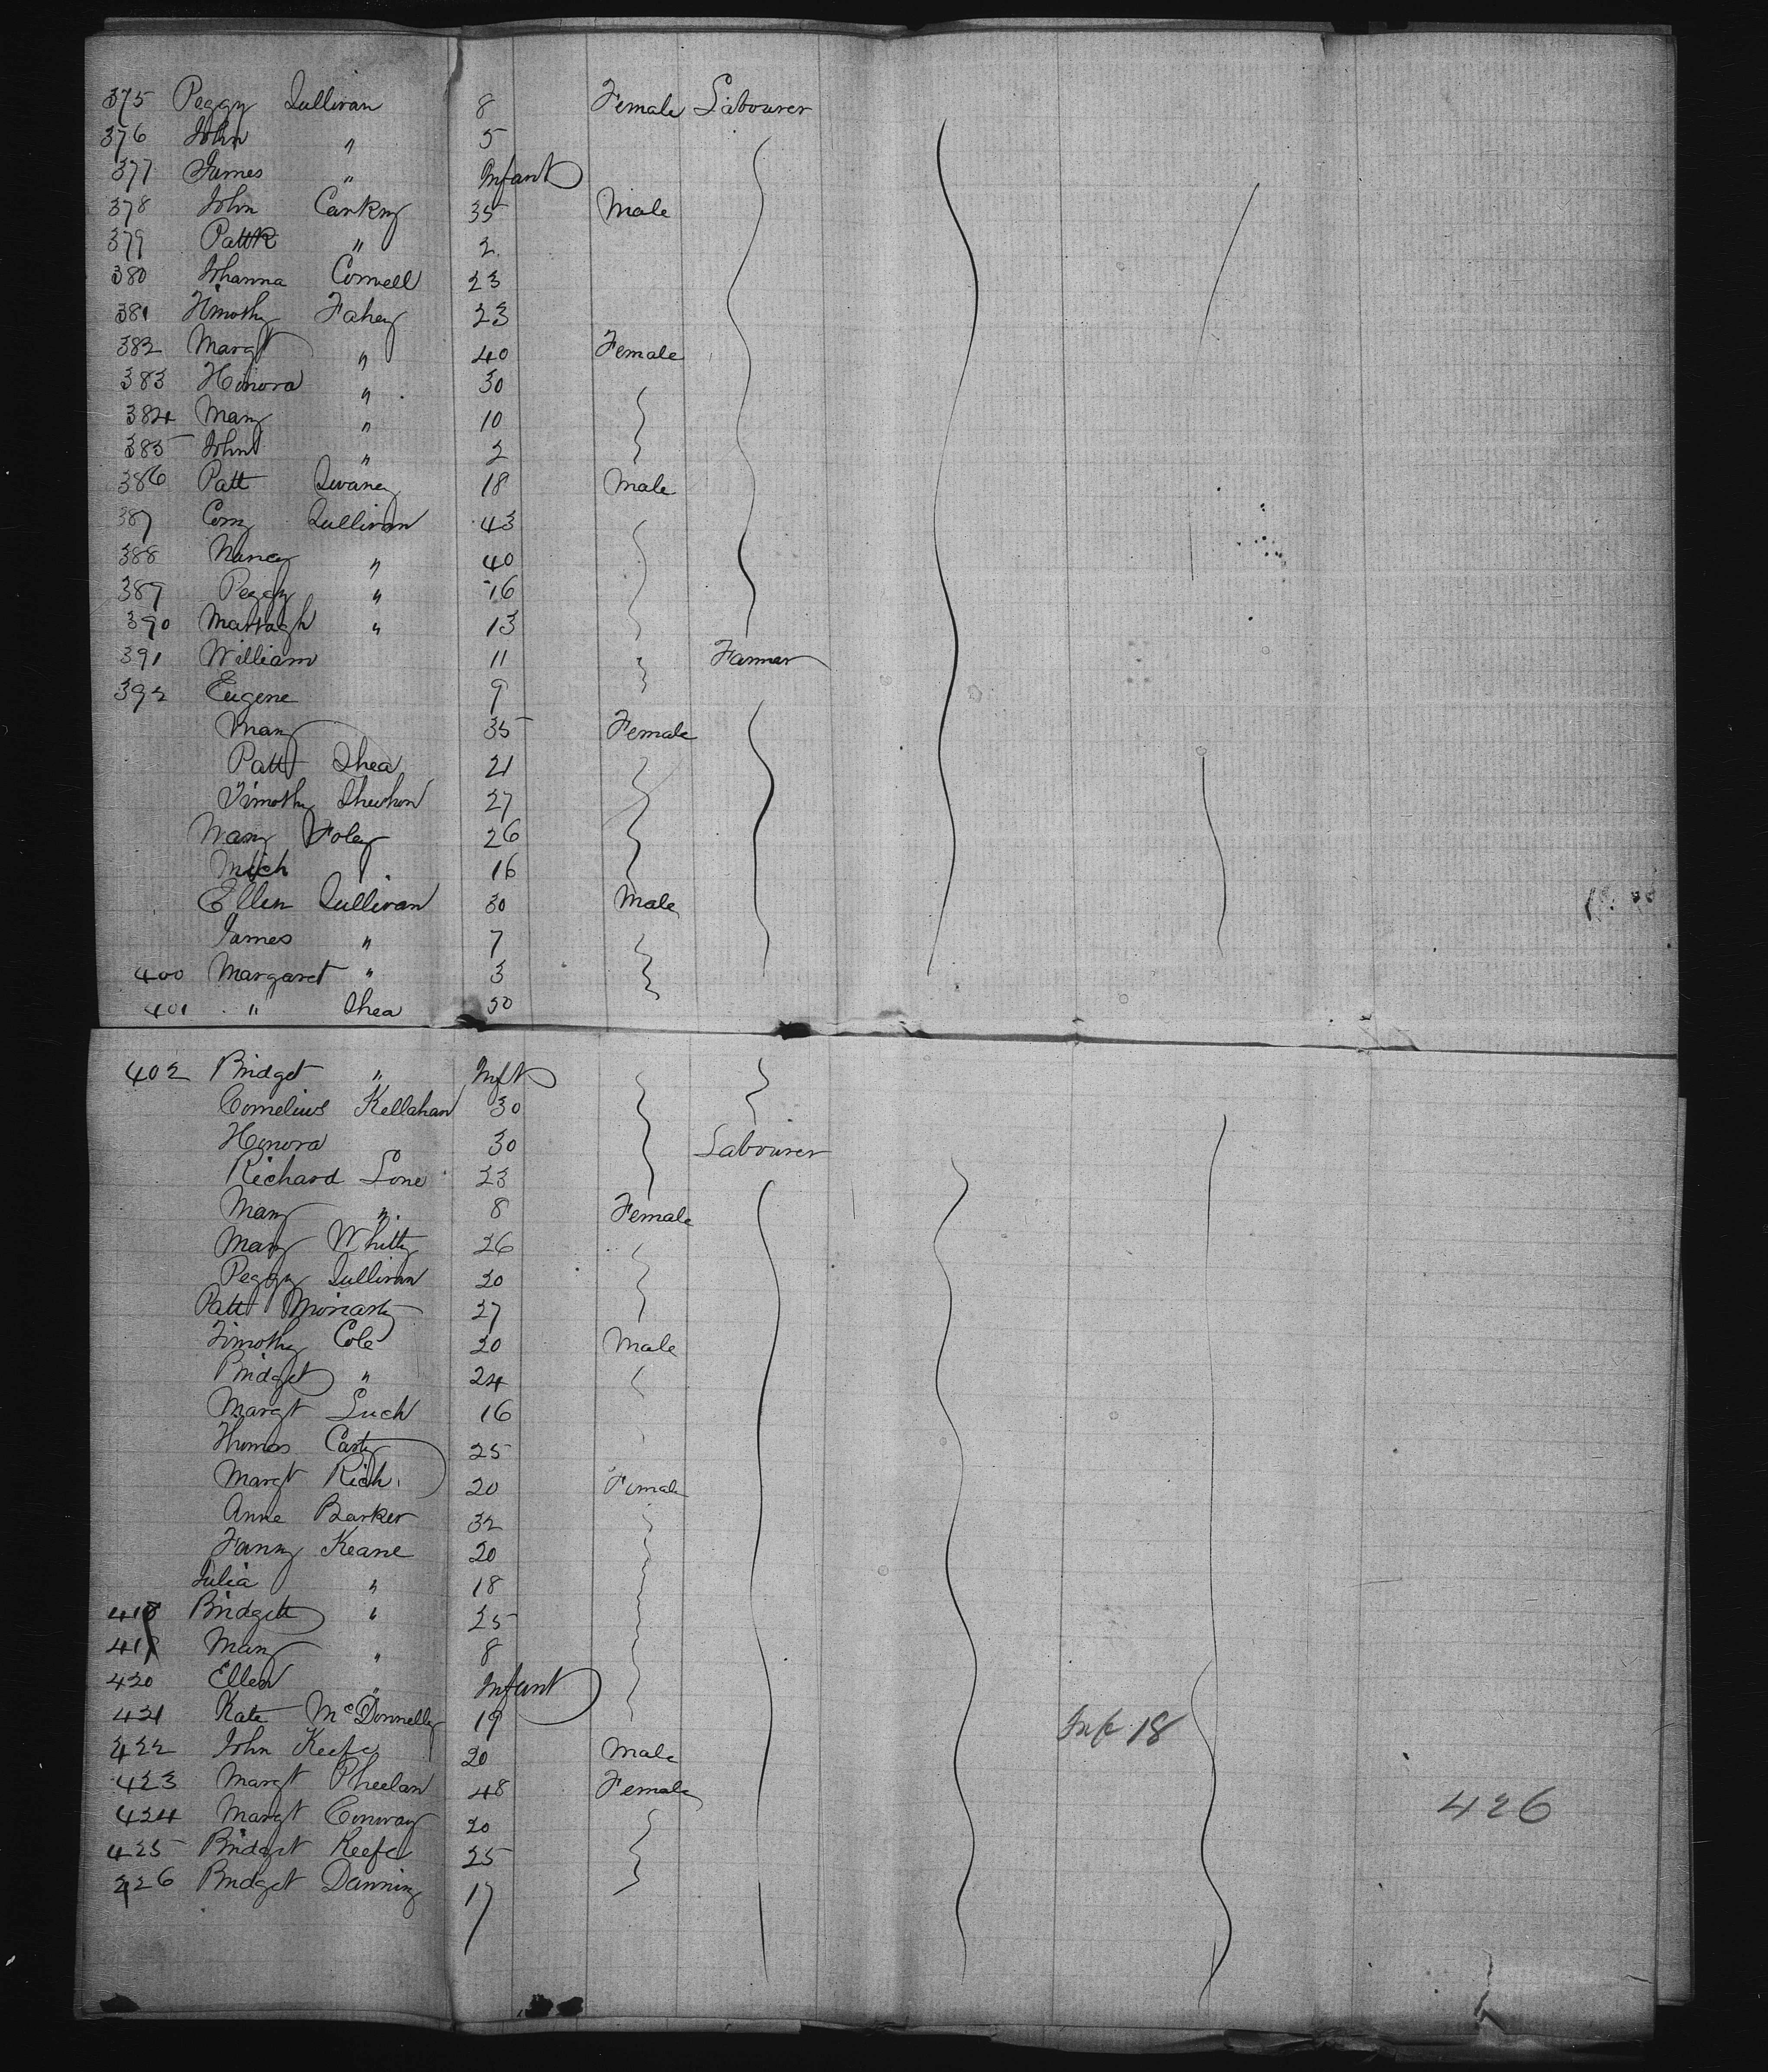 375 Peggy Sullivan 8 Female Labourer
376 John " 5
377 James " Infant
378 John 35 Male
379 Pattk " 2
380 Johanna Connell 23
381 Timothy Fahey 23
382 Margt " 40 Female
383 Honora " 30
384 Mary " 10
385 John " 2
386 Patt Swaney 18 Male
387 Corn Sullivan 43
388 Nancy " 40
389 Peggy " 16
390 Martagh " 13
391 William 11 Farmer
392 Eugene 9
Mary 35 Female
Patt Shea 21
Timothy 27
Mary Foley 26
Mich " 16
Ellen Sullivan 30 Male
James " 7
400 Margaret " 3
401 " Shea 30
402 Bridget " Inft
Cornelius Kellahan 30
Honora 30 Labourer
Richard Lone 23
Mary " 8 Female
Mary Whitty 26
Peggy Sullivan 20
Patt Moriarty 27
Timothy Cole 20 Male
Bridget " 24
Margt Luch 16
Thomas Carty 25
Margt Rich 20 Female
Anne Barker 32
Fanny Keane 20
Julia " 18
418 Bridgett " 25
419 Mary " 8
420 Ellen " Infant
421 Kate McDonnelly 19 Inf 18
422 John Keefe 20 Male
423 Margt Pheelan 48 Female
424 Margt Conway 20 426
425 Bridget Keefe 25
426 Bridget Danning 17